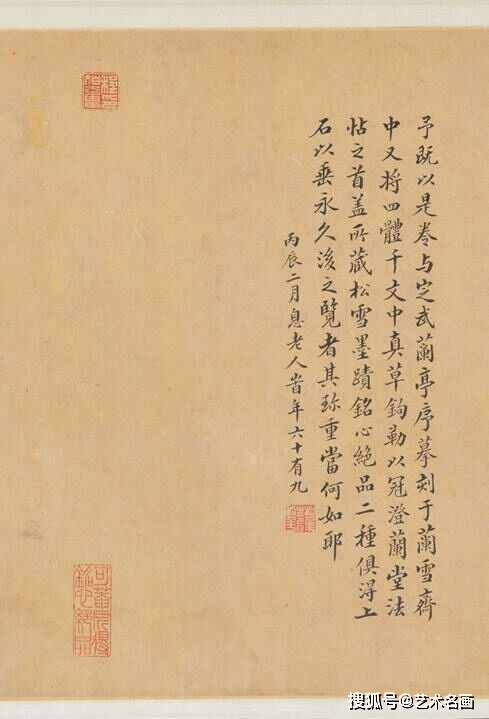 予既以是卷与定武蘭亭序摹刻于蘭雪齊
中又将四體千文中真草鉤勒以冠澄蘭堂法
帖之首盖所藏松雪墨蹟銘心絶品二種俱得上
石以垂永久後之覽者其珎重當何如耶
丙辰二月息老人時年六十有九
搜狐号@艺术名画